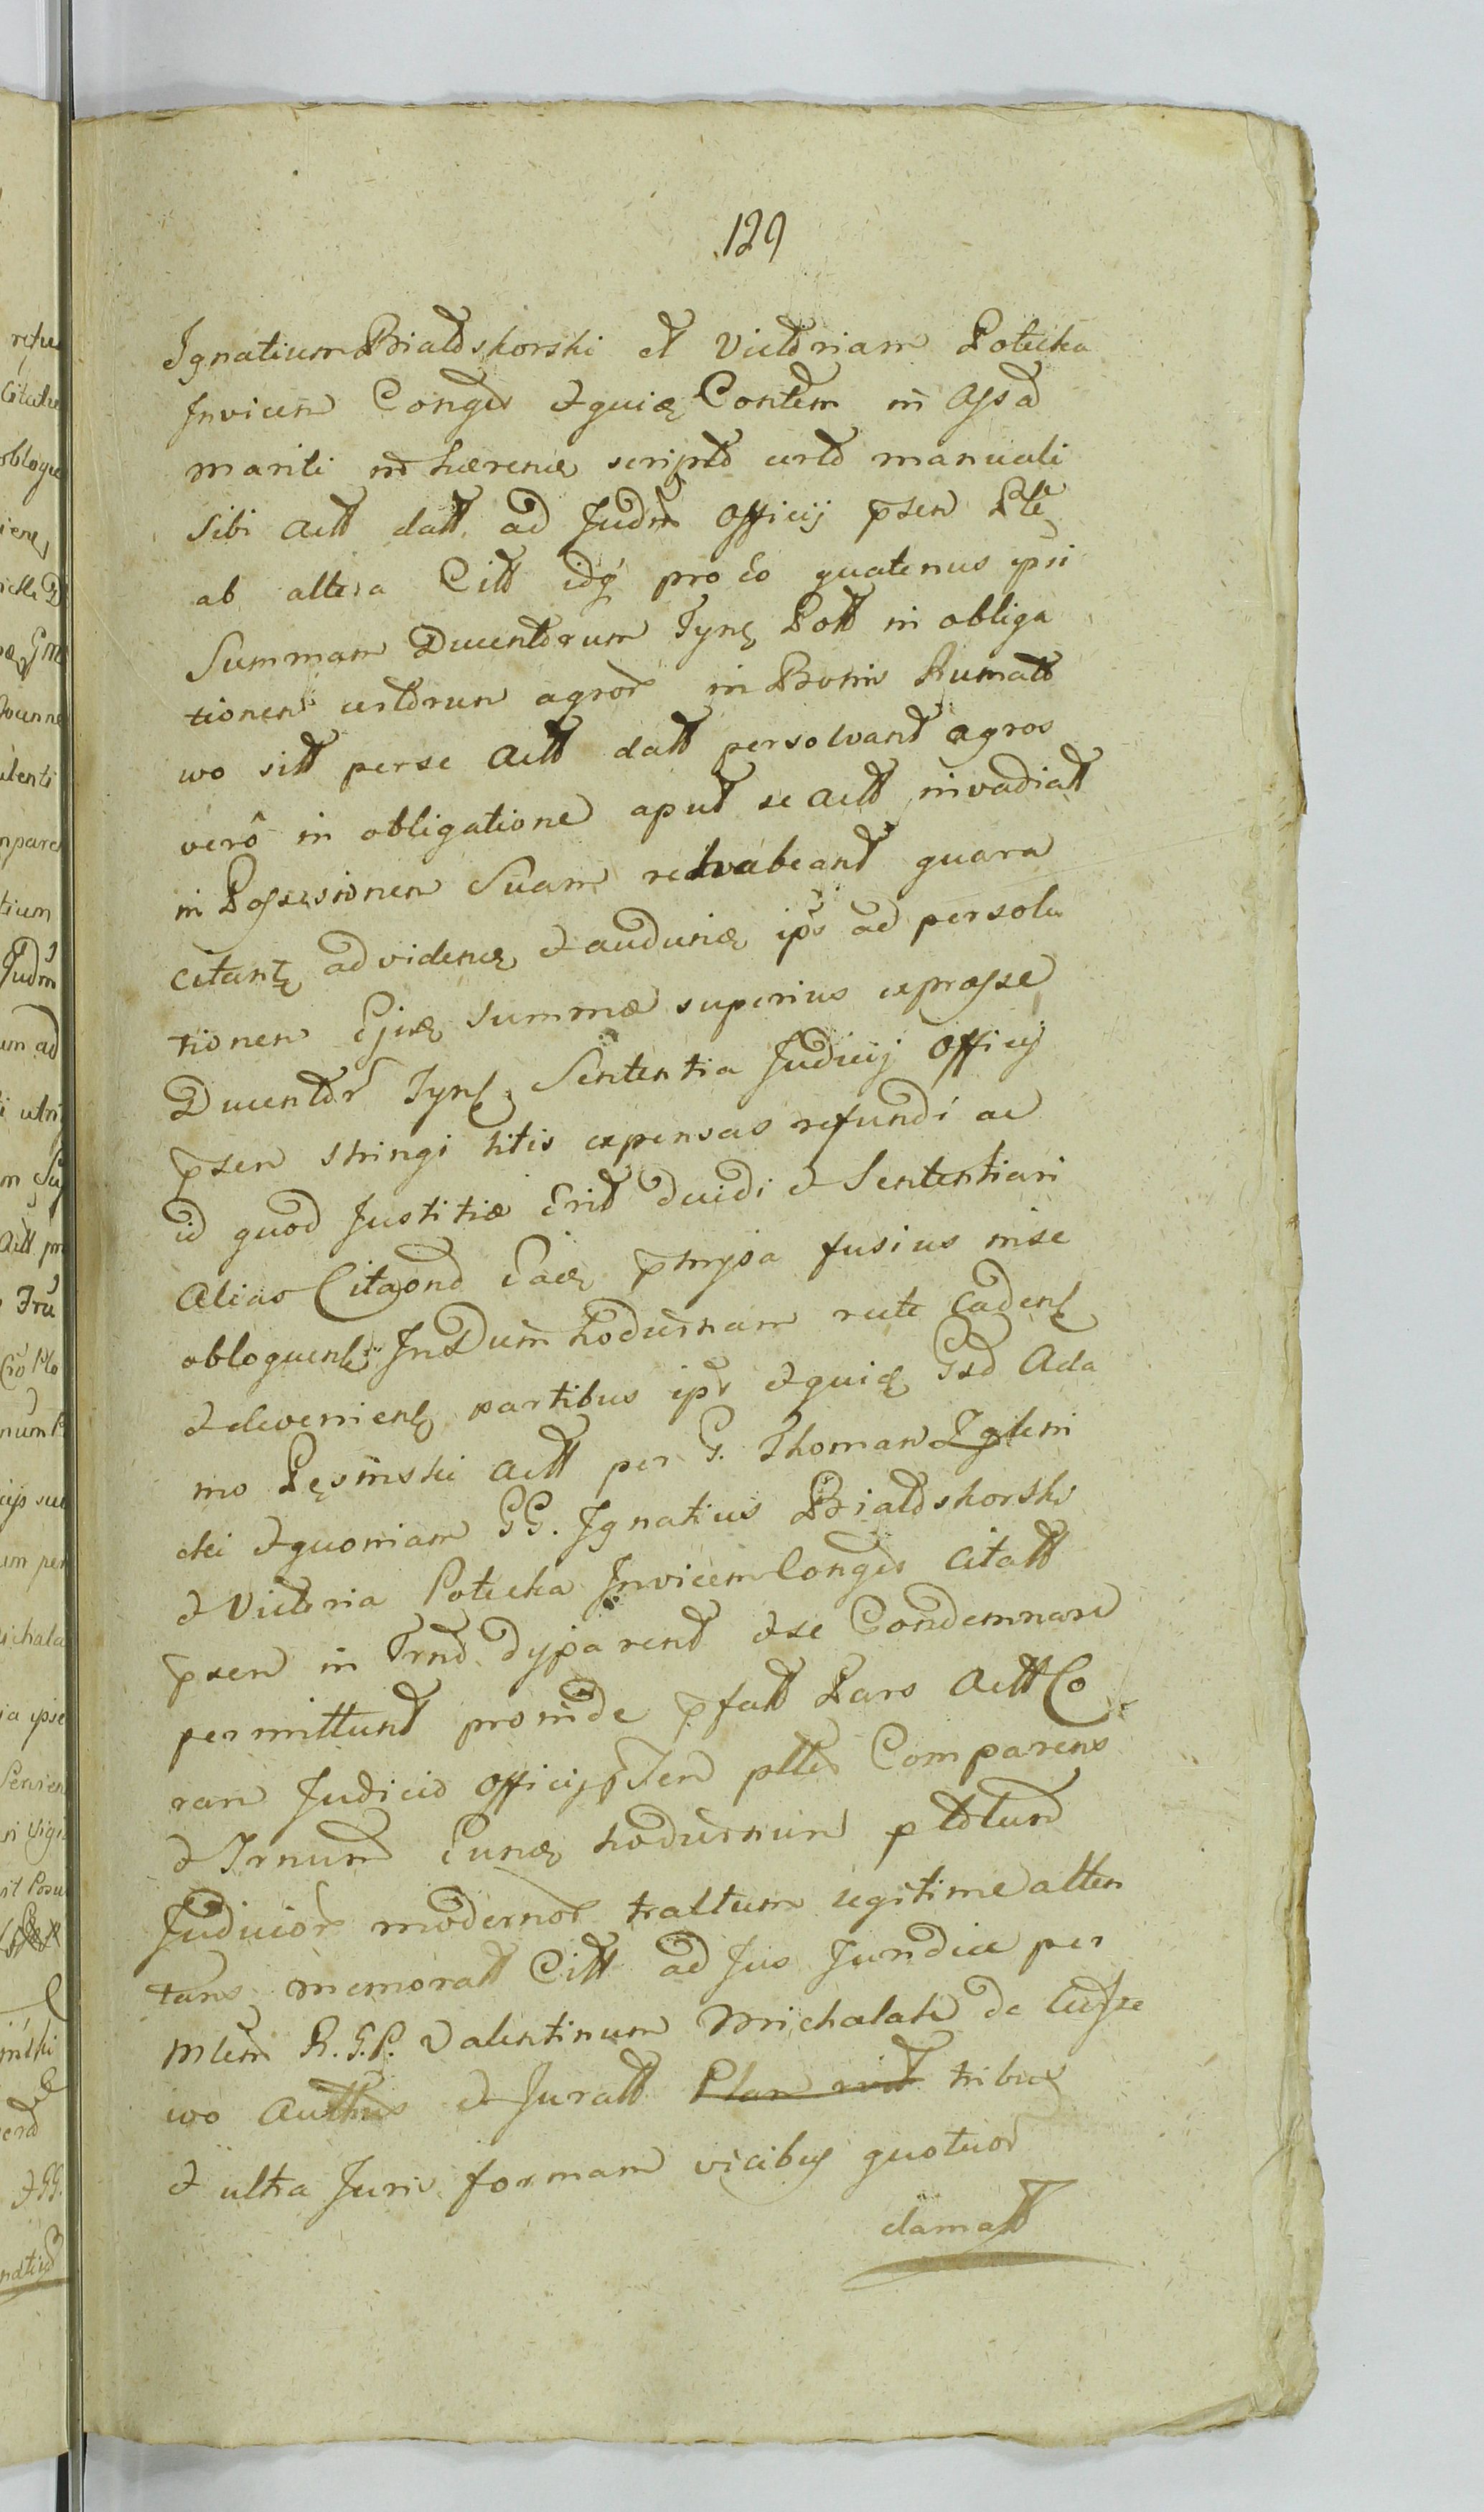 129
Ignatium Białoskorski et Victoriam Potecka
Invicem Conges et quiæ Contem in Assa
mariti in hærenæ scripto certo manuali
sibi Actt datt ad Judm Officij psen Pte
ab altera Citt idq pro Eo quatenus ipsi
Summam Ducentorum Tynf Pott in obliga
tionem certorum agror in Bonis Rumato
wo sitt per se Actt datt persolvant agros
verô in obligatione aput se Actt invadiatt
in Possesionem Suam reha beant quara
citant ad videnæ et audiendæ ips ad persolu
tionem Ejusæ Summæ superius expresse
Ducentor Tynf Sententia Judicij Officij
psen stringi litis expensas refundi ac
id quod Justitiæ Erit decidi et Sententiari
Alias Citaond Eacæ pmissa fusius in se
obloquenf In Dum hodiernam recte Cadenf
et devenienf partibus ips et quiæ Gsd Ada
mo Pęsinski Actt per G. Thomam Zglini
cki et quoniam GG. Ignatius Białoskorski
et Victoria Potecka Invicem Conges Citatt
psen in Trno dyparent et se Condemnari
permittunt proinde pfatt Pars Actt Co
ram Judicio Officij psen pttes Comparens
et Trnum Eunæ hodiernum p totum
Judicior modernor tractum legitime atten
tans memoratt Citt ad Jus Juridice per
Mlem R. G. P. Valentinum Michalak de
wo Auttus et Juratt tribus
et ultra Juris formam vicibus quotuor
clamatt